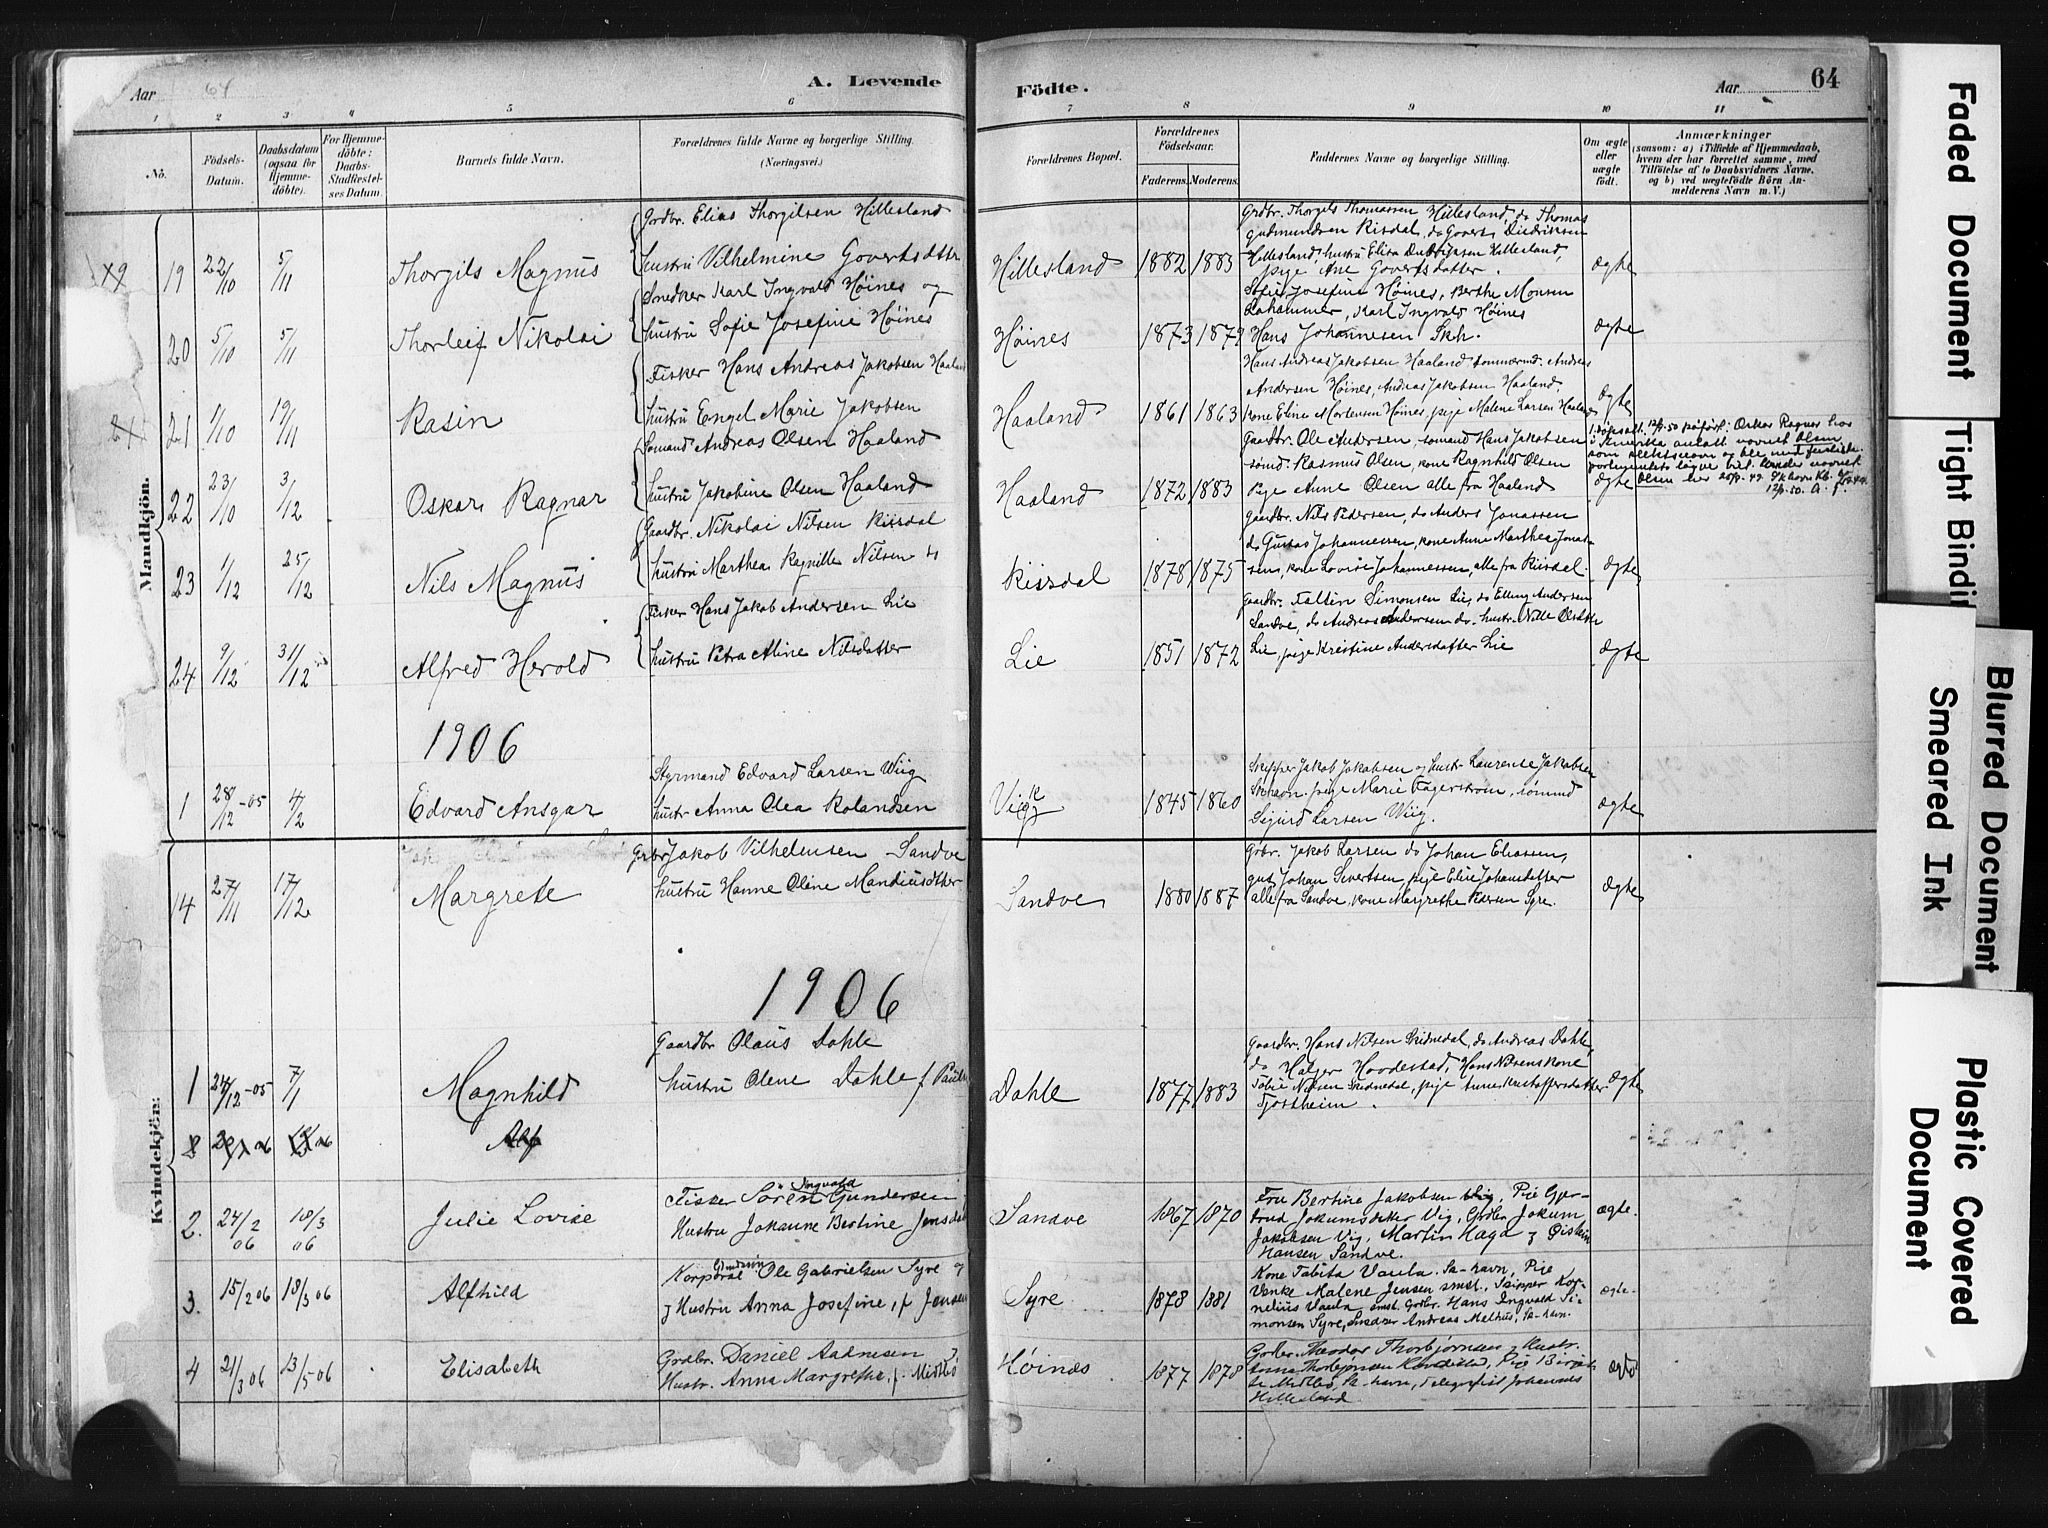 Aar 64
A. Levende
Födte.
Aar 64
1 2 3 4 5 6 7 8 9 10 11
No.
Födsels-
Datum.
Daabsdatum
(ogsaa for
Hjemme-
döbte).
For Hjemme-
döbte:
Daabs-
Stadfestel-
ses Datum.
Barnets fulde Navn.
Forældrenes fulde Navne og borgerlige Stilling.
(Næringsvei.)
Forældrenes Bopæl.
Forældrenes
Födselsaar.
Faderens. Moderens.
Faddernes Navne og borgerlige Stilling.
Om ægte
eller
uægte
födt.
Anmærkninger
(saasom: a) i Tilfælde af Hjemmedaab,
hvem der har forrettet samme, med
Tilföielse af to Daabsvidners Navne,
og b) ved uægtefödte Börn An-
melderens Navn m. V.)
Mandkjön.
19 22/10 5/11 Thorgils Magnus
Grdbr. Elias Thorgilsen Hillesland
hustru Vilhelmine Govertsdttr
Hillesland 1882 1883
Grdbr. Thorgils Thomassen Hillesland, do Thomas
Gudmundsen Risdal, do Govert Diedriksen
Hillesland, hustru Elisa Diedriksen Hillesland,
pige Ane Govertsdatter.
ægte
20 5/10 5/11 Thorleif Nikolai
Snedker Karl Ingvald Høines og
hustru Sofie Josefine Høines
Høines 1873 1879
Sofie Josefine Høines, Berthe Monsen
Lahammer, Karl Ingvald Høines
Hans Johannesen Skh.
ægte
21 1/10 19/11 Rasin
Fisker Hans Andreas Jakobsen Haaland
hustru Engel Marie Jakobsen
Haaland 1861 1863
Hans Andreas Jakobsen Haaland tømmermd. Andreas
Andersen Høines, Andreas Jakobsen Haaland,
kone Eline Mortensen Høines, pige Malene Larsen Haaland
ægte
22 23/10 3/12 Oskar Ragnar
Sømand Andreas Olsen Haaland
hustru Jakobine Olsen Haaland
Haaland 1872 1883
Gaardbr. Ole Andersen, sømand Hans Jakobsen
sømd. Rasmus Olsen, kone Ragnhild Olsen
Pige Anne Olsen alle fra Haaland
ægte
i Amerika antatt navnet Olsen
som slektsnavn og ble med familie
23 1/12 25/12 Nils Magnus
Gaardbr. Nikolai Nilsen Risdal
hustru Marthea Ragnille Nilsen
Riisdal 1878 1875
Gaardbr. Nils Pedersen, do Anders Jonassen
do Gustav Johannessen, kone Anne Marthea Jonas-
sen, kone Lovise Johannessen, alle fra Riisdal.
ægte
24 9/12 31/12 Alfred Herold
Fisker Hans Jakob Andersen Lie
hustru Petra Aline Nilsdatter
Lie 1851 1872
Gaardbr. Faltin Simonsen Lie, do Elling Andersen
Sandve, do Andreas Andersen do. hustr. Nille Olsdttr
Lie, pige Kristine Andersdatter Lie
ægte
1906
1 28/12-05 4/2 Edvard Ansgar
Styrmand Edvard Larsen Wiig
hustr. Anna Olea Rolandsen
Vig 1845 1860
Skipper Jakob Jakobsen og hustr. Laurense Jakobsen
Skhavn. pige Marie Fagerstrøm, sømmd
Sigurd Larsen Wiig.
ægte
Kvindekjön.
14 27/11 17/12 Margrete
Grbr Jakob Vilhelmsen Sandve
hustru Hanne Oline Mandiusdtter
Sandve 1880 1887
Grbr. Jakob Larsen do Johan Eliassen,
gut Johan Sivertsen, pige Elise Johansdatter
alle fra Sandve, kone Margrethe Pedersen Syre.
ægte
1906
1 24/12-05 7/1 Magnhild
Gaardbr Olaus Dahle
hustru Olene Dahle f. Pauls
Dahle 1877 1883
Gaardbr. Hans Nilsen Skidnedal, do Andreas Dahle,
do Halger Hoodestad, Hans Nilsens kone
Tobie Nilsen Skidnedal, pige Anne Kristoffersdatter
Tjostheim.
ægte
Alf
2. 24/2 06 18/3 06 Julie Lovise
Fisker Søren Ingvald Gundersen
Hustru Johanne Bertine Jensdat
Sandve 1867 1870
Fru Bertine Jakobsen Vig, Pie Gjer-
trud Jokumsdatter Vig, Grdbr. Jokum
Jakobsen Vig, Martin Haga & Øistein
Hansen Sandve.
ægte.
3. 15/2 06 18/3 06 Alfhild
Korporal Ole Gabrielsen Syre
& Hustru Anna Josefine, f. Jensen
Syre 1878 1881
Kone Tabita Vaula. Sk-havn, Pie
Venke Malene Jensen smst., Skipper Kor-
nelius Vaula smst. Grdbr. Hans Ingvald Si-
monsen Syre, Snedker Andreas Melhus, Sk-havn.
ægte.
4 21/3 06 13/5 06 Elisabeth
Grdbr. Daniel Aadnesen &
Hustr. Anna Margrethe, f. Midbø
Høinæs 1877 1878
Grdbr. Theodor Thorbjørnsen & Hustr.
Anna Thorbjørnsen
Sk-havn, telegrafist Johannes
Hillesland
ægte
Faded Document
Tight Bindin
Blurred Document
Smeared Ink
Plastic Covered
Document